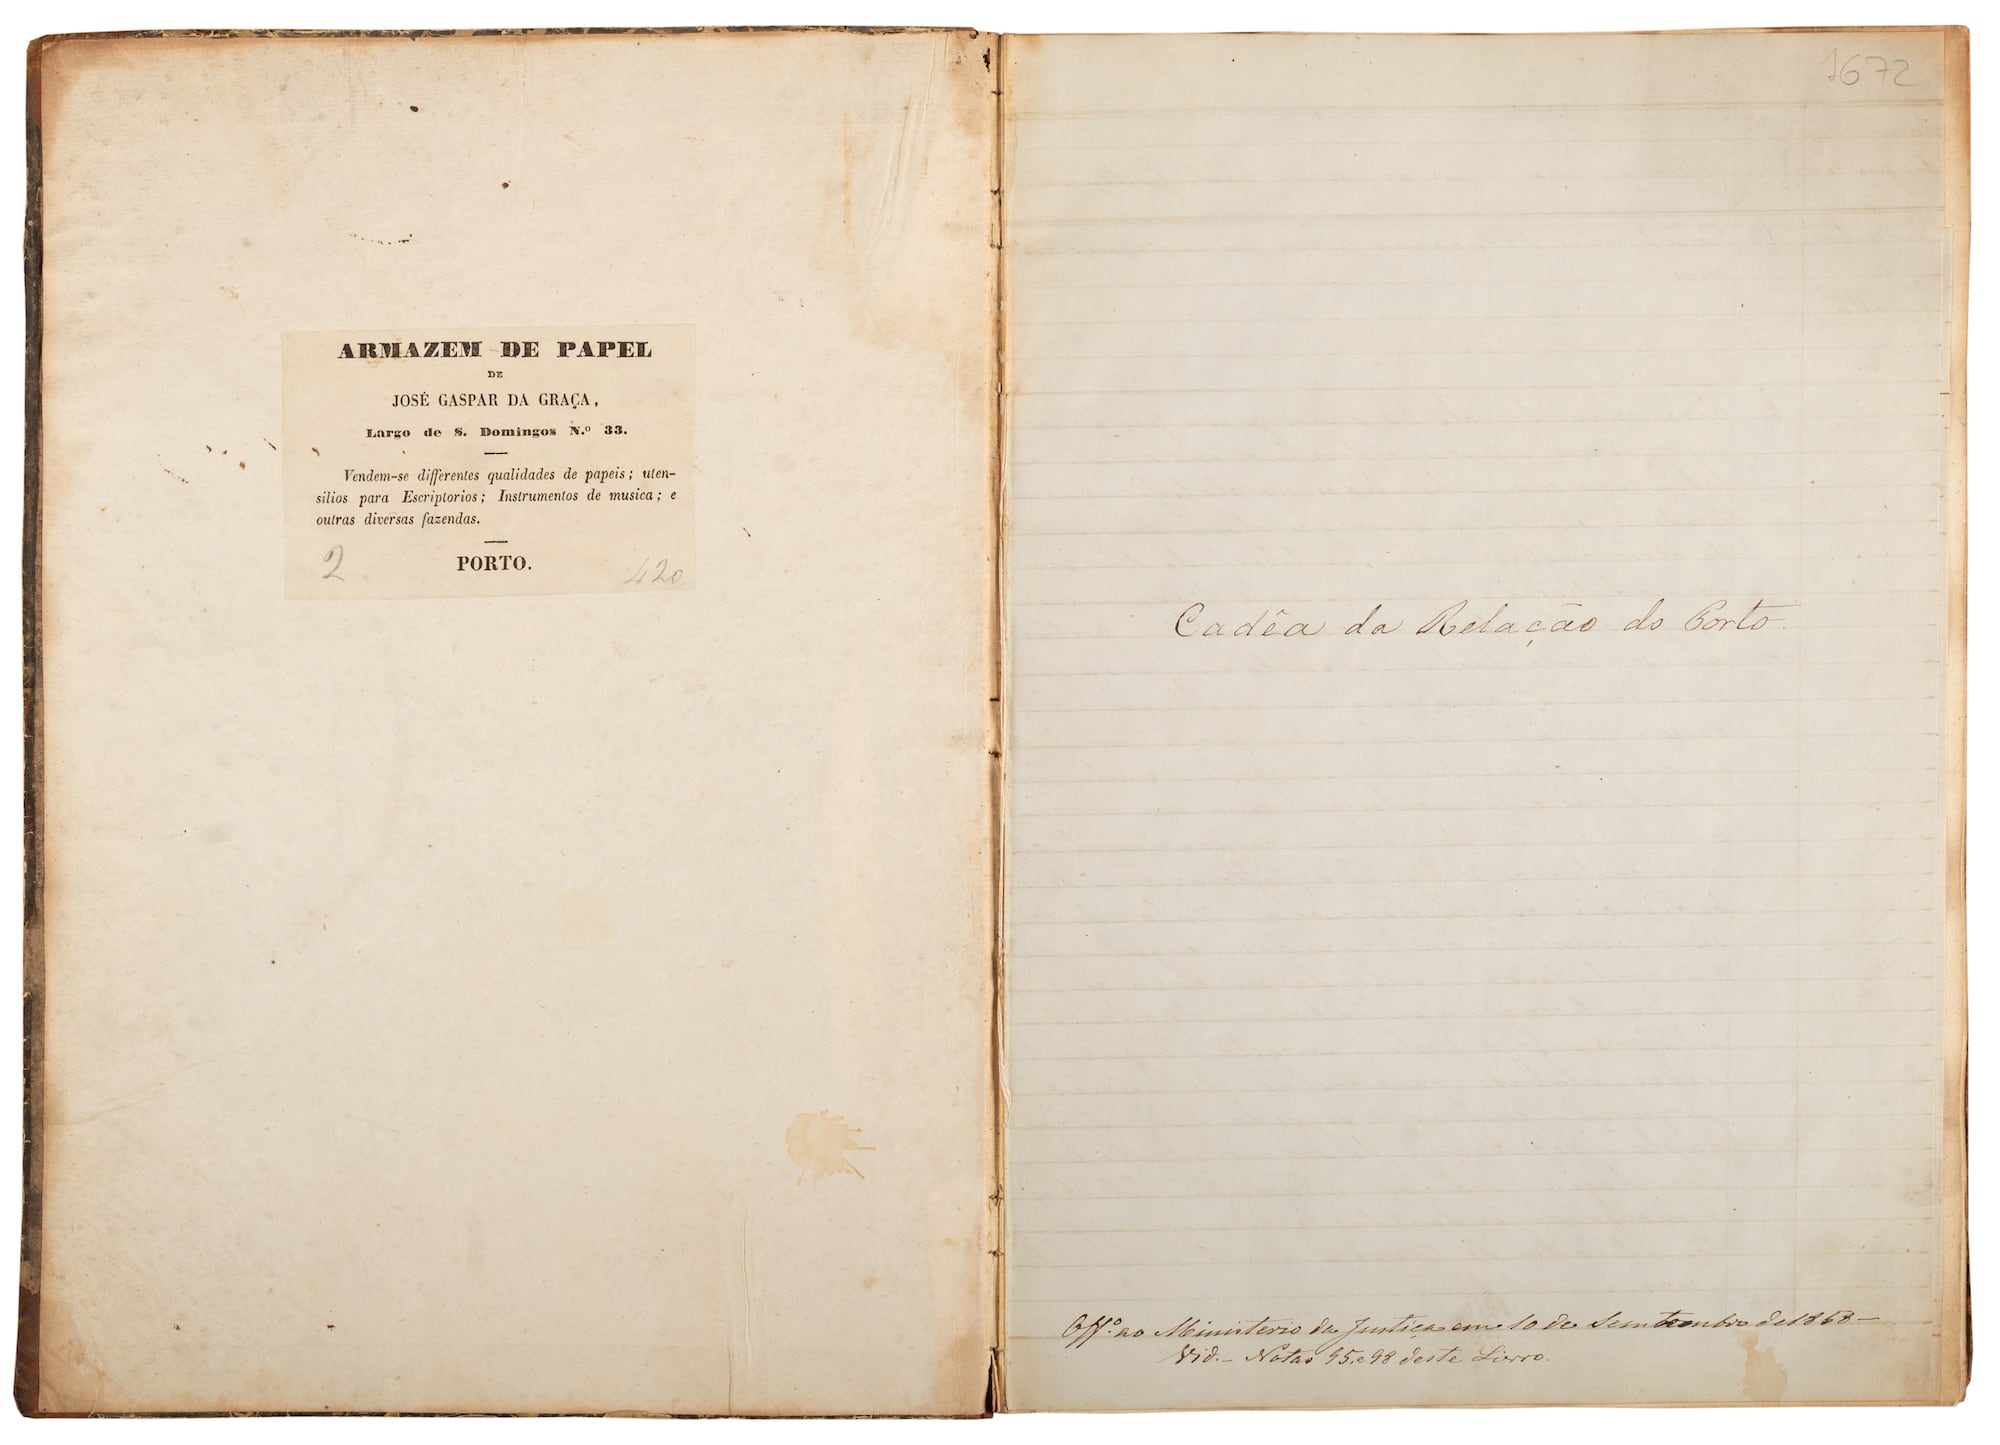 ARMAZEM DE PAPEL
DE
JOSÉ GASPAR DA GRAÇA,
Largo de S. Domingos N.º 33.
Vendem-se differentes qualidades de papeis; uten-
silios para Escriptorios; Instrumentos de musica; e
outras diversas fazendas.
PORTO.
2
420
1672
Cadêa da Relação do Porto.
Off.º ao Ministerio da Justiça em 10 de Semtembro de 1868 —
Vid. — Notas 95 e 98 deste Livro.